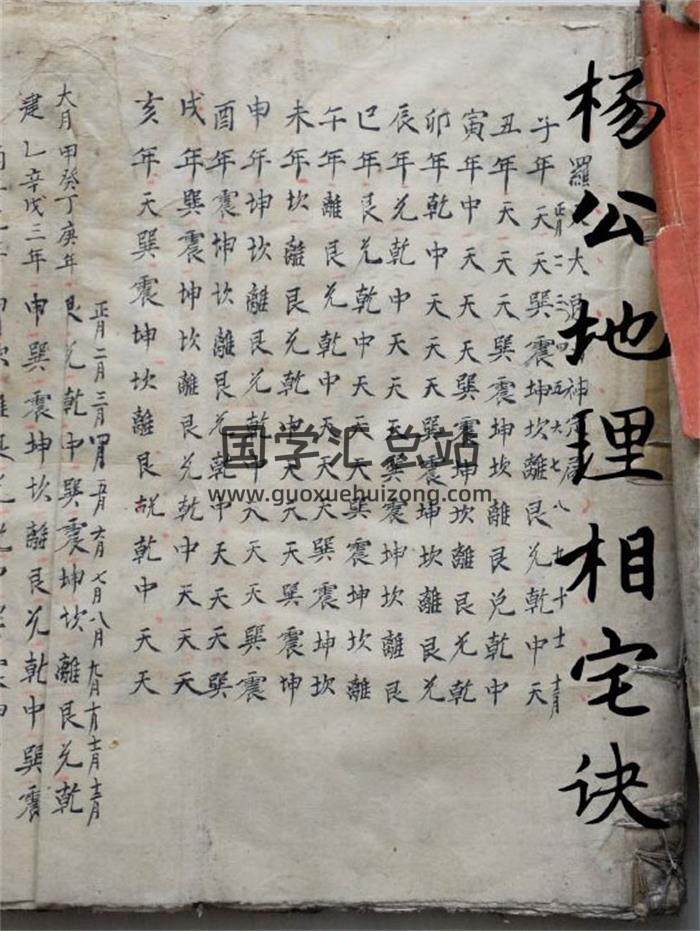 杨公地理相宅诀
羅大神定局
正月二三四五六七八九十十一十二月
子年天天巽震坤坎離艮兌乾中天
丑年天天天巽震坤坎離艮兌乾中
寅年中天天天巽震坤坎離艮兌乾
卯年乾中天天天巽震坤坎離艮兌
辰年兌乾中天天天巽震坤坎離艮
巳年艮兌乾中天天天巽震坤坎離
午年離艮兌乾中天天天巽震坤坎
未年坎離艮兌乾中天天天巽震坤
申年坤坎離艮兌乾中天天天巽震
酉年震坤坎離艮兌乾中天天天巽
戌年巽震坤坎離艮兌乾中天天天
亥年天巽震坤坎離艮兌乾中天天
正月二月三月四月五月六月七月八月九月十月十一月十二月
大月甲癸丁庚年艮兌乾中巽震坤坎離艮兌乾
建乙辛戊三年申巽震坤坎離艮兌乾中巽震
国学汇总站
www.guoxuehuizong.com